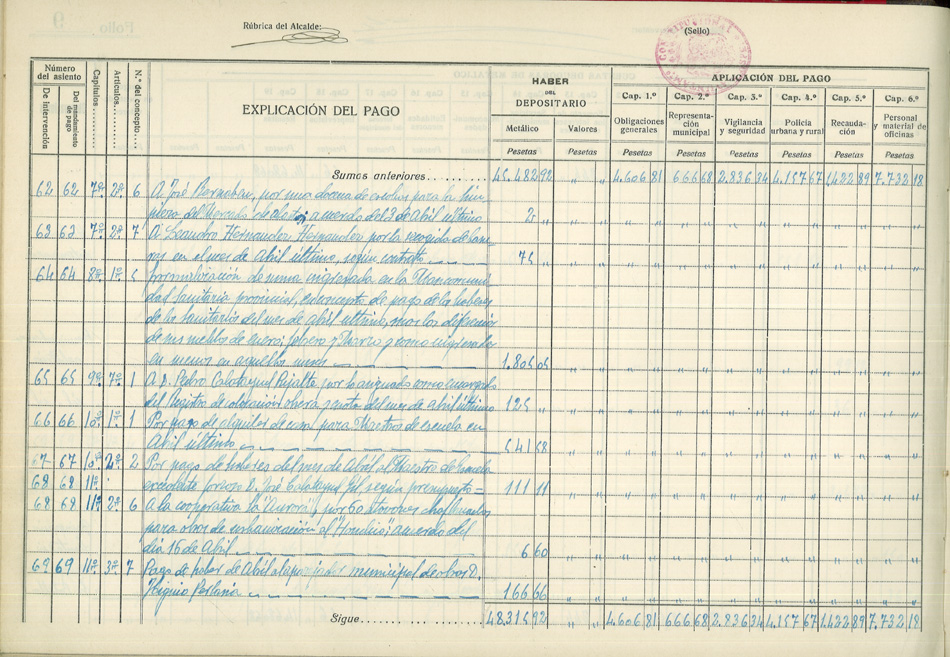 Rúbrica del Alcalde:
(Sello)
Número del asiento
De intervención
Del mandamiento de pago
Capítulos
Artículos
N.º del concepto
EXPLICACIÓN DEL PAGO
HABER
DEL
DEPOSITARIO
Metálico
Valores
Pesetas
Pesetas
APLICACIÓN DEL PAGO
Cap. 1.º Cap. 2.º Cap. 3.º Cap. 4.º Cap. 5.º Cap. 6.º
Obligaciones generales
Representación municipal
Vigilancia y seguridad
Policía urbana y rural
Recaudación
Personal y material de oficinas
Pesetas Pesetas Pesetas Pesetas Pesetas Pesetas
Sumas anteriores 45.482 92 " " 4.606 81 666 68 2.836 34 4.157 67 1.422 89 7.732 18
62 62 7º 2º 6 A José Bernabeu, por una docena de escobas para la lim
pieza del Mercado de acuerdo del 3 de Abril último 2
63 63 7º 2º 7 A Leandro Hernandez Hernandez por la recogida de basu
ras en el mes de Abril último, según contrato 75 "
64 64 8º 1º 5 Formalización de suma ingresada en la Mancomuni
dad Sanitaria provincial, en concepto de pago de los haberes
de los sanitarios del mes de abril último, mas las diferencias
de sus sueldos de enero; febrero y Marzo
en menos en aquellos meses 1.805 05
65 65 9º 7º 1 A D. Pedro Calatayud Rijalte por lo asignado como encargado
del Registro de colocación obrera y nota del mes de abril último 125 "
66 66 10º 1º 1 Por pago de alquiler de casa para Maestros de escuela en
Abril último 541 68
67 67 10º 2º 2 Por pago de haberes del mes de Abril al Maestro de Escuela
68 68 11º excedente forzoso D. José Calatayud Gil, según presupuesto = 111 11
68 68 11º 2º 6 A la cooperativa "la Aurora", por 60
para obras de urbanización al acuerdo del
día 16 de Abril 6 60
69 69 11º 3º 7 Pago de haber de Abril al municipal de obras D.
Higinio Perlasia 166 66
Sigue 48.315 92 " " 4.606 81 666 68 2.836 34 4.157 67 1.422 89 7.732 18